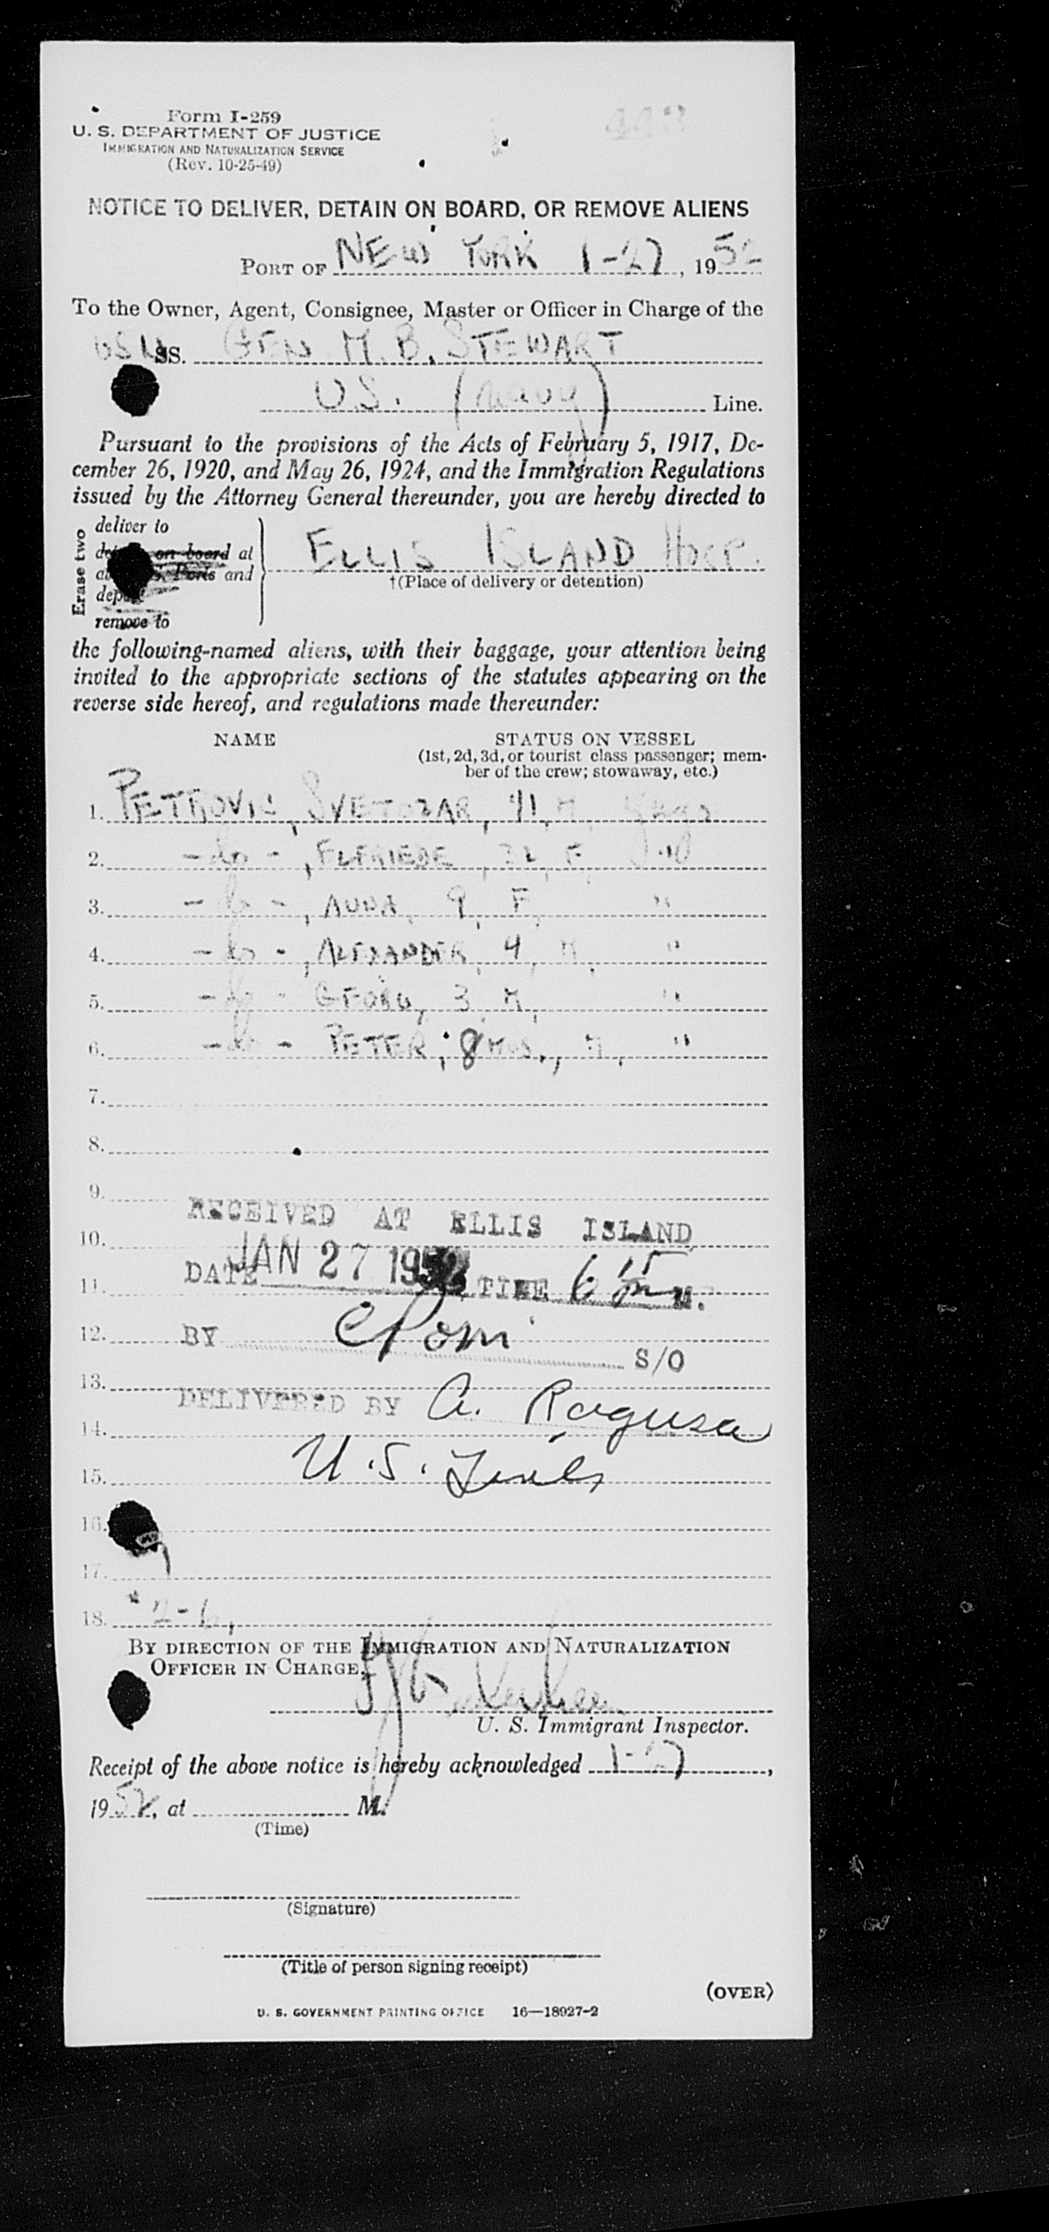 Form I-259
U. S. DEPARTMENT OF JUSTICE
IMMIGRATION AND NATURALIZATION SERVICE
(Rev. 10-25-49)
NOTICE TO DELIVER, DETAIN ON BOARD, OR REMOVE ALIENS
PORT OF NEW YORK 1-27, 1952
To the Owner, Agent, Consignee, Master or Officer in Charge of the
SS. GEN M. B. STEWART
U.S. (Navy) Line.
Pursuant to the provisions of the Acts of February 5, 1917, De-
cember 26, 1920, and May 26, 1924, and the Immigration Regulations
issued by the Attorney General thereunder, you are hereby directed to
Erase two
deliver to
on board at
Ports and
remove to
ELLIS ISLAND HOSP.
†(Place of delivery or detention)
the following-named aliens, with their baggage, your attention being
invited to the appropriate sections of the statutes appearing on the
reverse side hereof, and regulations made thereunder:
NAME STATUS ON VESSEL
(1st, 2d, 3d, or tourist class passenger; mem-
ber of the crew; stowaway, etc.)
1. PETROVIC, SVETOZAR, 41, M,
2. -do-, ELFRIEDE, 32, F
3. -do-, ANNA, 9, F, "
4. -do-, ALEXANDER, 4, M, "
5. -do- GEORG, 3, M, "
6. -do- PETER, 8 MOS., M, "
7.
8.
9.
RECEIVED AT ELLIS ISLAND
10.
DATE JAN 27 1952 TIME 6 15 pm M.
11.
12. BY S/O
13.
DELIVERED BY A. Ragusa
14.
U.S. Lines
15.
16.
17.
18. 2-6,
BY DIRECTION OF THE IMMIGRATION AND NATURALIZATION
OFFICER IN CHARGE,
U. S. Immigrant Inspector.
Receipt of the above notice is hereby acknowledged 1-27,
1952, at M.
(Time)
(Signature)
(Title of person signing receipt)
(OVER)
U. S. GOVERNMENT PRINTING OFFICE 16—18927-2